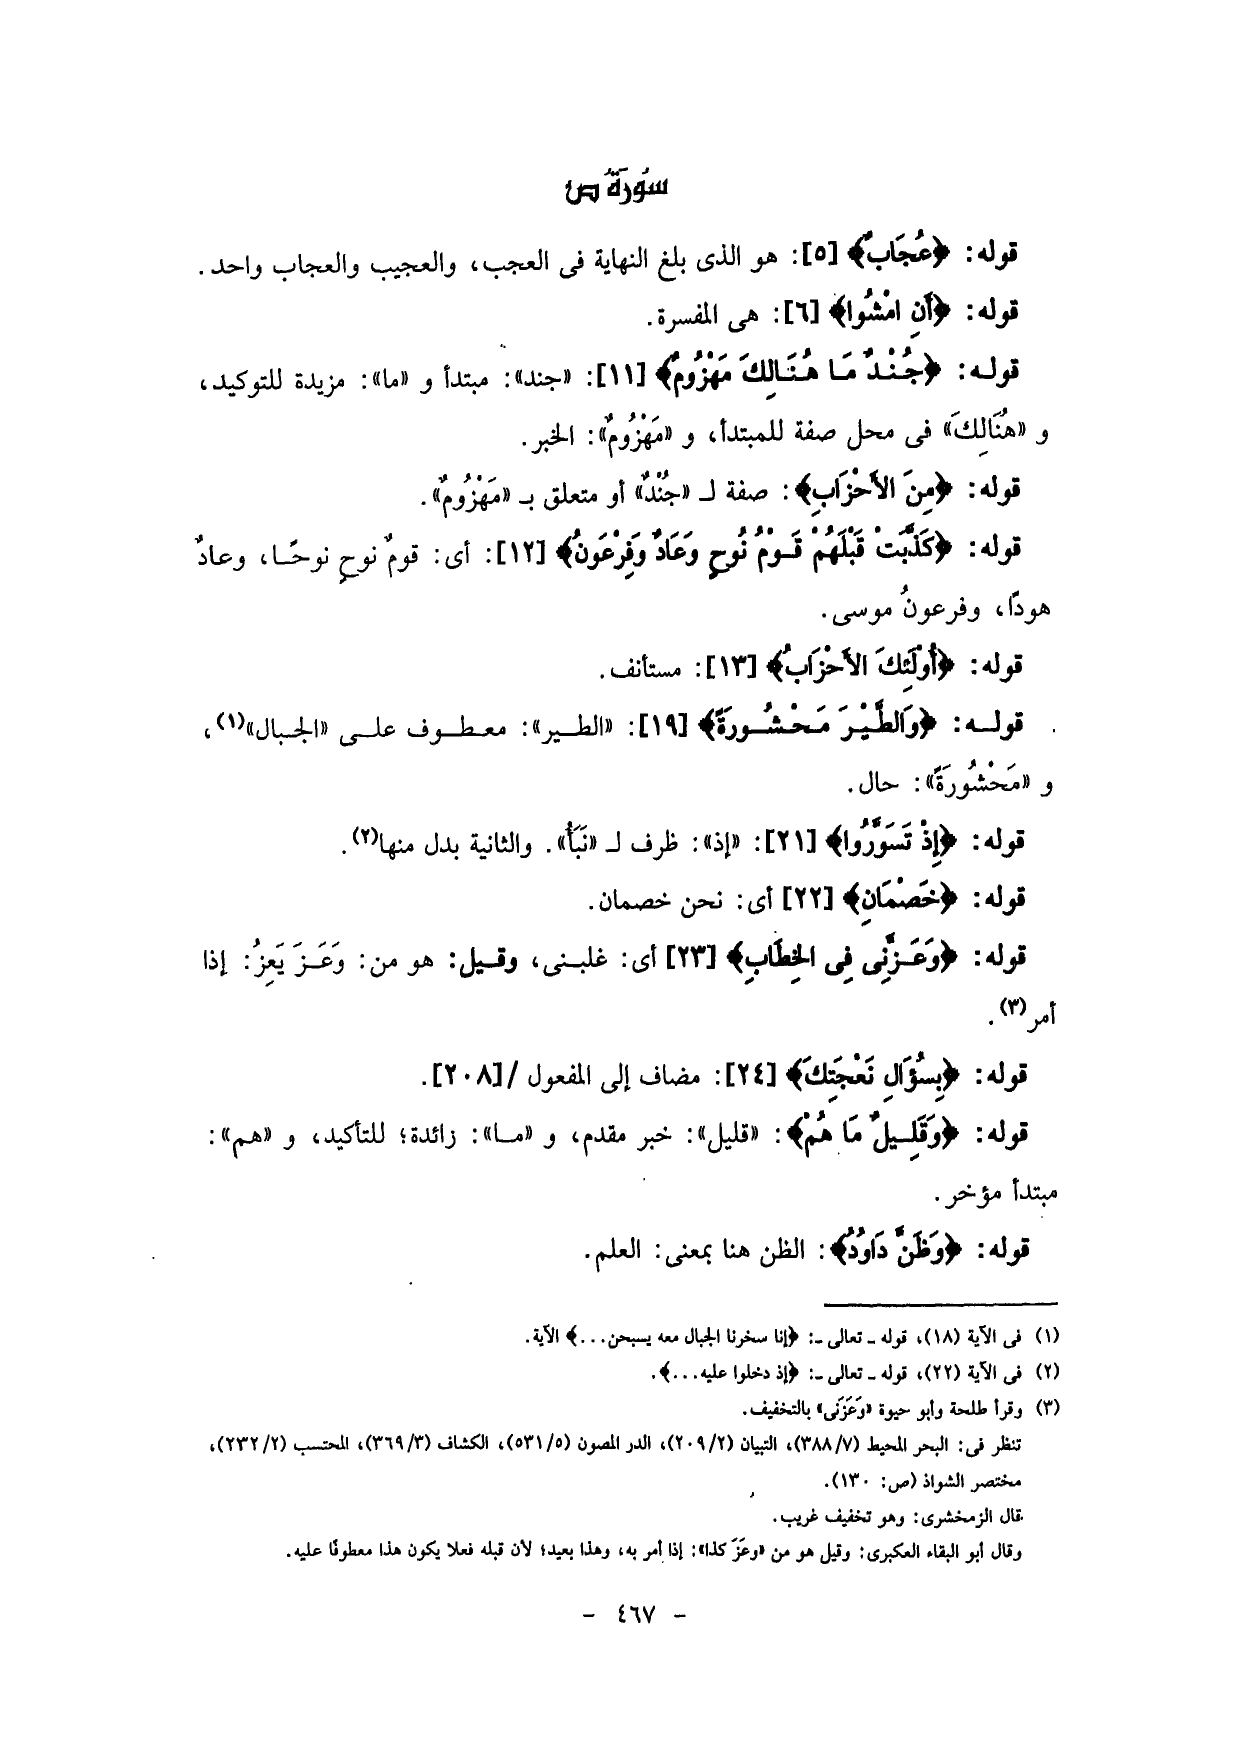 سُورَةُ ص
قوله: ﴿عُجَابٌ﴾ [٥]: هو الذى بلغ النهاية فى العجب، والعجيب والعجاب واحد.
قوله: ﴿أَنِ امْشُوا﴾ [٦]: هى المفسرة.
قولـه: ﴿جُنْدٌ مَا هُنَالِكَ مَهْزُومٌ﴾ [١١]: «جند»: مبتدأ و «ما»: مزيدة للتوكيد،
و «هُنَالِكَ» فى محل صفة للمبتدأ، و «مَهْزُومٌ»: الخبر.
قوله: ﴿مِنَ الأَحْزَابِ﴾: صفة لـ «جُنْدٌ» أو متعلق بـ «مَهْزُومٌ».
قوله: ﴿كَذَّبَتْ قَبْلَهُمْ قَوْمُ نُوحٍ وَعَادٌ وَفِرْعَونُ﴾ [١٢]: أى: قومُ نوحٍ نوحًا، وعادٌ
هودًا، وفرعونُ موسى.
قوله: ﴿أُولَئِكَ الأَحْزَابُ﴾ [١٣]: مستأنف.
قولـه: ﴿وَالطَّيْرَ مَحْشُورَةً﴾ [١٩]: «الطير»: معطوف على «الجبال»(١)،
و «مَحْشُورَةً»: حال.
قوله: ﴿إِذْ تَسَوَّرُوا﴾ [٢١]: «إذ»: ظرف لـ «نَبَأُ». والثانية بدل منها(٢).
قوله: ﴿خَصْمَانِ﴾ [٢٢] أى: نحن خصمان.
قوله: ﴿وَعَزَّنِى فِى الخِطَابِ﴾ [٢٣] أى: غلبنى، وقيل: هو من: وَعَزَ يَعِزُ: إذا
أمر(٣).
قوله: ﴿بِسُؤَالِ نَعْجَتِكَ﴾ [٢٤]: مضاف إلى المفعول /[٢٠٨].
قوله: ﴿وَقَلِيلٌ مَا هُمْ﴾: «قليل»: خبر مقدم، و «مـا»: زائدة؛ للتأكيد، و «هم»:
مبتدأ مؤخر.
قوله: ﴿وَظَنَّ دَاوُدُ﴾: الظن هنا بمعنى: العلم.
(١) فى الآية (١٨)، قوله ـ تعالى ـ: ﴿إنا سخرنا الجبال معه يسبحن...﴾ الآية.
(٢) فى الآية (٢٢)، قوله ـ تعالى ـ: ﴿إذ دخلوا عليه...﴾.
(٣) وقرأ طلحة وأبو حيوة «وَعَزَنَى» بالتخفيف.
تنظر فى: البحر المحيط (٣٨٨/٧)، التبيان (٢٠٩/٢)، الدر المصون (٥٣١/٥)، الكشاف (٣٦٩/٣)، المحتسب (٢٣٢/٢)،
مختصر الشواذ (ص: ١٣٠).
قال الزمخشرى: وهو تخفيف غريب.
وقال أبو البقاء العكبرى: وقيل هو من «وعَزَ كذا»: إذا أمر به، وهذا بعيد؛ لأن قبله فعلا يكون هذا معطوفًا عليه.
- ٤٦٧ -